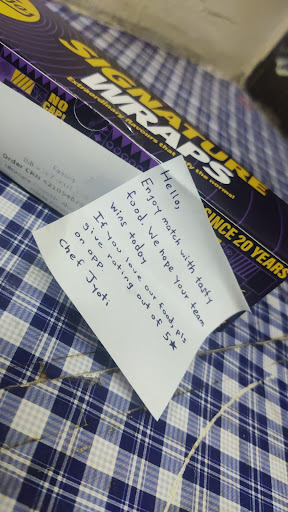 SIGNATURE
WRAPS
Extraordinary flavours that defy the normal
NO
CAP!
SINCE 20 YEARS
Hello,
Enjoy match with tasty
food we hope your team
wins today
If you love our food, pls
give rating out of 5★
on app
Chef Jyoti